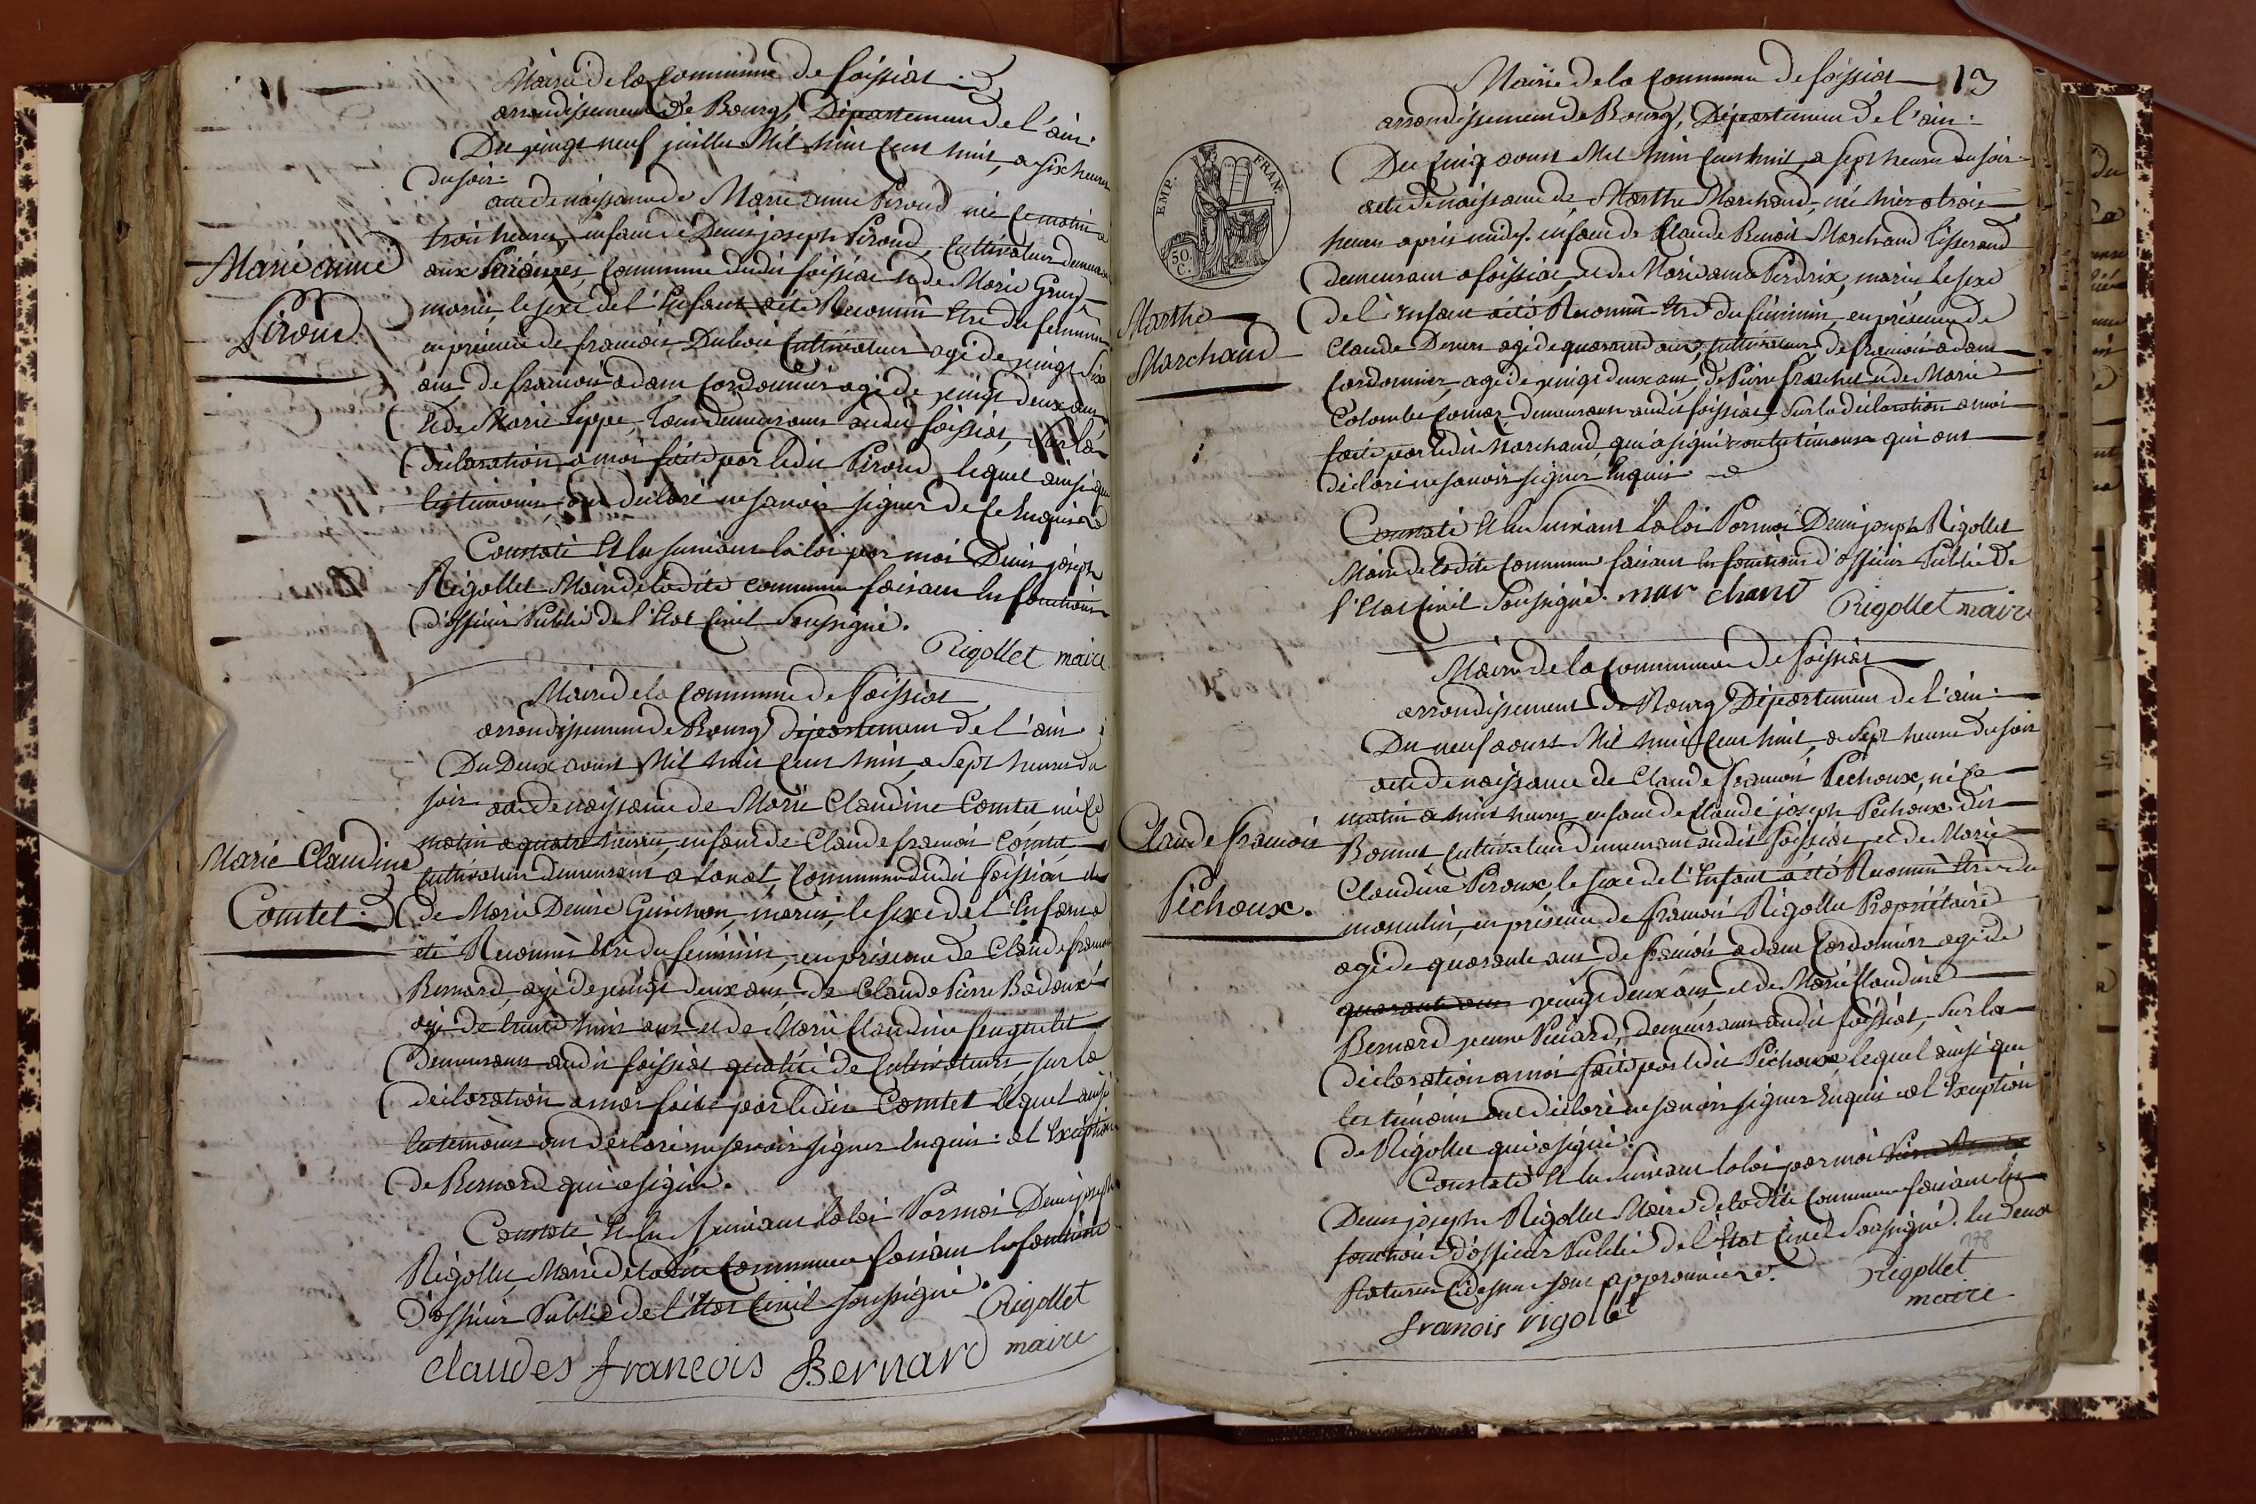 Mairie de la Commune de foissiat
arrondissement de Bourg, Département de l'ain.
Du vingt neuf juillet Mil huit Cent huit, a six heures
du soir.
acte de naissance de Marie anne Piroud née ce matin a
trois heures, enfant de Denis joseph Piroud, Cultivateur demeurant
aux Commune dudit foissiat et de Marie
mariés, le sexe de l'Enfant a été Reconnu Etre du feminin
en présence de francois Dubois Cultivateur agé de vingt six
ans de francois adam Cordonnier agé de vingt deux ans
Et de Marie Lippe, tous demeurants audit foissiat, sur la
déclaration a moi faite par ledit Piroud lequel ainsi que
les témoins ont déclaré ne savoir signer de ce Enquis
Constaté Et lu suivant la loi par moi Denis joseph
Rigollet Maire de ladite commune faisant les fonctions
d'officier Public de l'Etat Civil Soussigné.
Rigollet maire
Marie anne
Piroud
Mairie de la Commune de foissiat
arrondissement de Bourg département de l'ain
Du Deux aout Mil huit Cent huit, a Sept heures du
soir acte de naissance de Marie Claudine Comtet née ce
matin a quatre heures, enfant de Claude francois Comtet
Cultivateur demeurant a Commune dudit foissiat et
de Marie Denise Guichon, mariés, le sexe de l'Enfant a
été Reconnu Etre du feminin, en présence de Claude francois
Bernard, agé de vingt deux ans de Claude Pierre Badoux
agé de trente huit ans et de Marie Claudine
demeurants audit foissiat qualité de Cultivateurs, sur la
déclaration a moi faite par ledit Comtet lequel ainsi
les temoins ont déclaré ne savoir signer Enquis. a l'Exception
de Bernard qui a signé.
Constaté Et lu suivant la loi Par moi Denis joseph
Rigollet, Maire de ladite Commune faisant les fonctions
d'officier Public de l'Etat Civil soussigné.
Rigollet
maire
claudes francois Bernard
Marie Claudine
Comtet.
13
Mairie de la Commune de foissiat
arrondissement de Bourg, Département de l'ain.
Du Cinq aout Mil huit Cent huit a sept heures du soir
acte de naissance de Marthe Marchand, née hier a trois
heures après midy. enfant de Claude Benoit Marchand Tisserand
demeurant a foissiat et de Marie anne Perdrix, mariés, le sexe
de l'Enfant a été Reconnu Etre du féminin, en présence de
Claude agé de quarante ans, Cultivateur de francois adam
Cordonnier, agé de vingt deux ans, de Pierre et de Marie
Colombe demeurants audit foissiat, Sur la déclaration a moi
faite par ledit Marchand, qui a signé les témoins qui ont
déclaré ne savoir signer Enquis
Constaté Et lu Suivant la loi Par moi Denis joseph Rigollet
Maire de ladite Commune faisant les fonctions d'officier Public de
l'Etat Civil Soussigné. mar chand
Rigollet maire
EMP. FRAN.
50
C.
Marthe
Marchand
Mairie de la Commune de foissiat
arrondissement de Bourg Département de l'ain.
Du neuf aout Mil huit Cent huit, a Sept heures du soir
acte de naissance de Claude francois Péchoux, né ce
matin a huit heures, enfant de Claude joseph Péchoux dit
Bonnet Cultivateur demeurant audit foissiat et de Marie
Claudine Peroux, le sexe de l'Enfant a été Reconnu Etre du
masculin, en présence de francois Rigollet Propriétaire
agé de quarante ans de francois adam Cordonnier agé de
quarante ans vingt deux ans, et de Marie Claudine
Bernard demeurants audit foissiat, sur la
déclaration a moi faite par ledit Péchoux, lequel ainsi que
les témoins ont déclaré ne savoir signer Enquis a l'Exception
de Rigollet qui a signé.
Constaté Et lu Suivant la loi par moi
Denis joseph Rigollet Maire de ladite Commune faisant les
fonctions d'officier Public de l'Etat Civil Soussigné. les deux
Ratures Cidessus sont approuvées.
178
Rigollet
maire
francois rigollet
Claude francois
Péchoux.